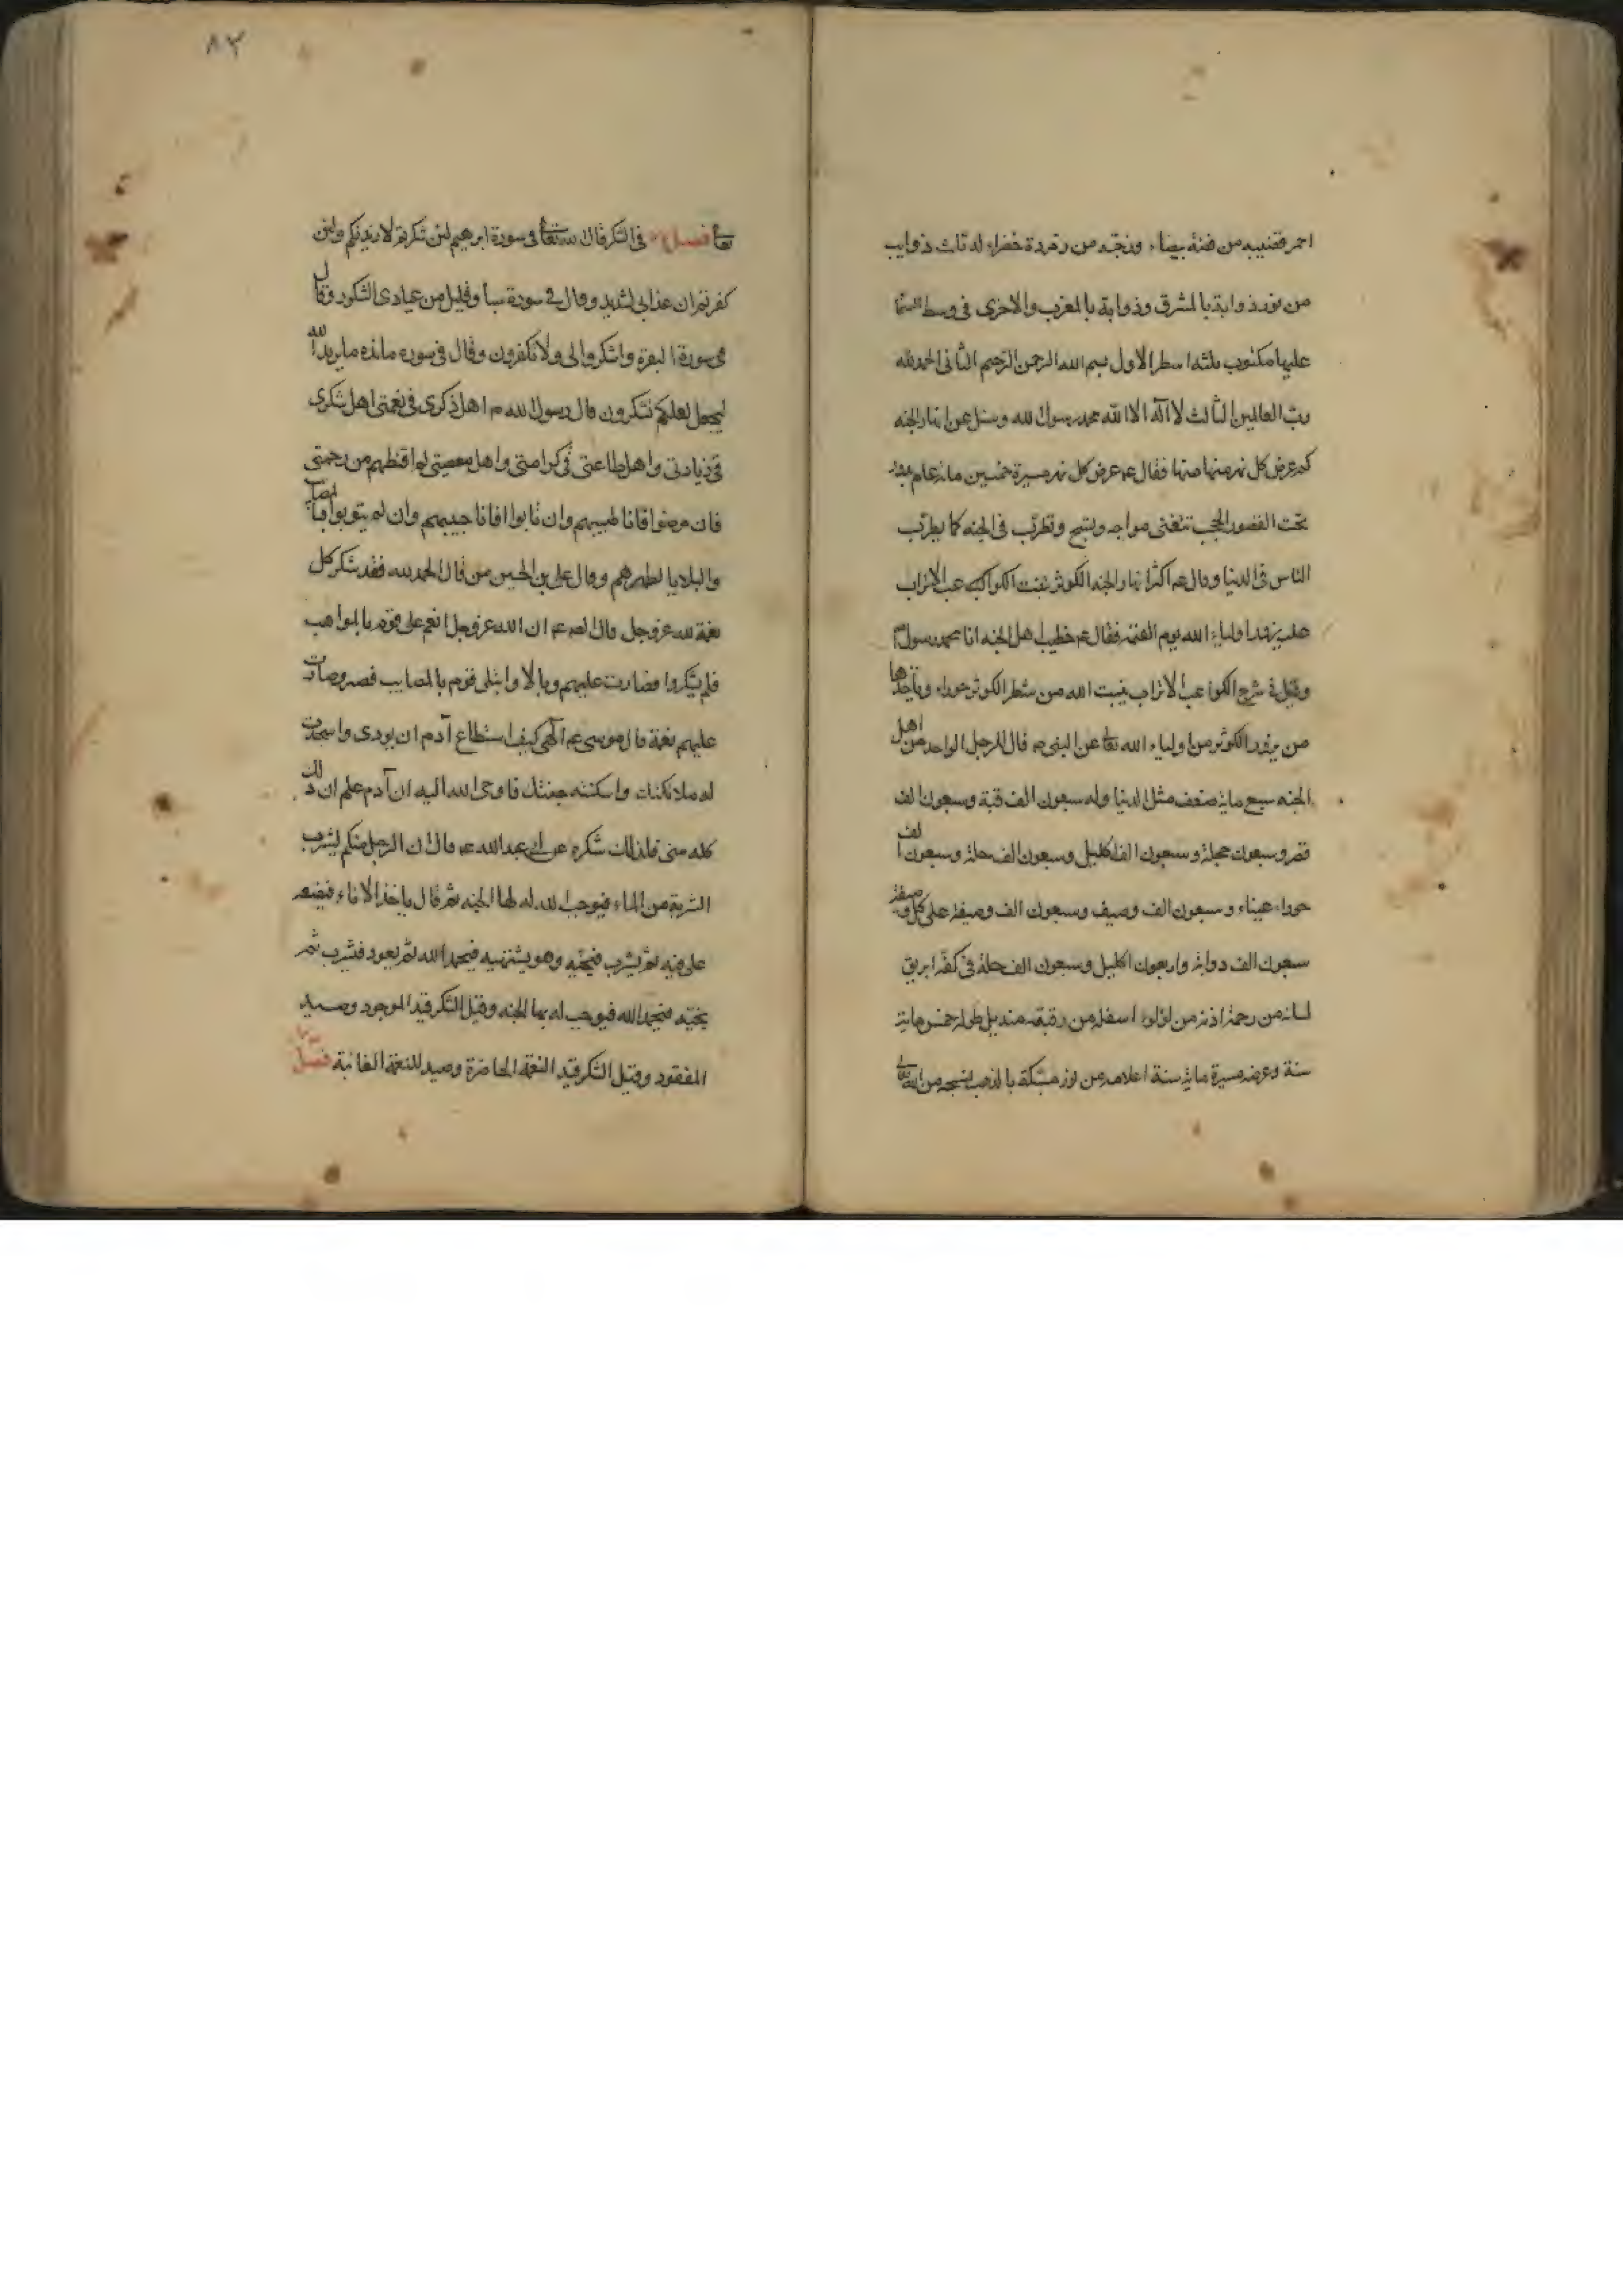 احمر قضيبه من فضة بيضاء وزجّه من زمردة خضراء له ثلث ذوايب
من نور ذوابة بالمشرق وذوابة بالمغرب والاخرى فى وسط السما
عليها مكتوب ثلثة اسطر الاول بسم الله الرحمن الرحيم الثانى الحمد لله
ربّ العالمين الثالث لا اله الا الله محمد رسول الله وسئل عن انهار الجنه
كم عرض كل نهر منها فقال عم عرض كل نهر مسيرة خمسين مائة عام يدور
تحت القصور والحجب تتغنى مواجه ويسبح وتطرّب فى الجنه كما يطرّب
الناس فى الدنيا وقال عم اكثر انهار الجنه الكوثر ينبت الكواكب عب الاتراب
عليه يزوره اولياء الله يوم القيمة فقال عم خطيب اهل الجنه انا محمد رسول الله
وقيل فى شرح الكواعب الاتراب ينبت الله من شطر الكوثر حوراء وياخذها
من يزور الكوثر من اولياء الله تعا عن النبى ص قال للرجل الواحد من اهل
الجنه سبع ماية ضعف مثل الدنيا وله سبعون الف قبة وسبعون الف
قصر وسبعون حجلة وسبعون الف اكليل وسبعون الف حلة وسبعون الف
حوراء عيناء وسبعون الف وصيف وسبعون الف وصيفة على كل وصيفة
سبعون الف ذوابة واربعون اكليل وسبعون الف حلة فى كفّه ابريق
لسانه من رحمة اذنه من لؤلؤ اسفله من رقبته منديل طوله خمس ماية
سنة وعرضه مسيرة ماية سنة اعلامه من نور مشبكة بالذهب نسجه من الله تعالى
٨٣
تعا فصل فى الشكر قال الله تعا فى سورة ابرهيم لئن شكرتم لازيدنكم ولئن
كفرتم ان عذابى لشديد وقال فى سورة سبأ وقليل من عبادى الشكور وقال
فى سورة البقره واشكروا لى ولا تكفرون وقال فى سوره مائده ما يريد الله
ليجعل لعلكم تشكرون قال رسول الله ص اهل ذكرى فى نعمتى اهل شكرى
فى زيادتى واهل طاعتى فى كرامتى واهل معصيتى لم اقنطهم من رحمتى
فان مرضوا فانا طبيبهم وان تابوا فانا حبيبهم وان لم يتوبوا فبالمصايب
والبلايا لطهرهم وقال على بن الحسين من قال الحمد لله فقد شكر كل
نعمة لله عز وجل قال الص عم ان الله عز وجل انعم على قوم بالمواهب
فلم يشكروا فصارت عليهم وبالا وابتلى قوم بالمصايب فصبروا فصارت
عليهم نعمة قال موسى عم الهى كيف استطاع آدم ان يودى واسجدت
له ملائكتك واسكنته جنتك فاوحى الله اليه ان آدم علم ان ذلك
كله منى فذلك شكره عن ابى عبد الله عم قال ان الرجل منكم ليشرب
الشربة من الماء فيوجب الله له لها الجنه ثم قال ياخذ الاناء فيضعه
على فيه ثم يشرب فينحّيه وهو يشتهيه فيحمد الله ثم يعود فيشرب ثم
ينحيه فيحمد الله فيوجب له بها الجنه وقيل الشكر قيد الموجود وصيد
المفقود وقيل الشكر قيد النعمة الحاضرة وصيد للنعمة الغائبة فصل